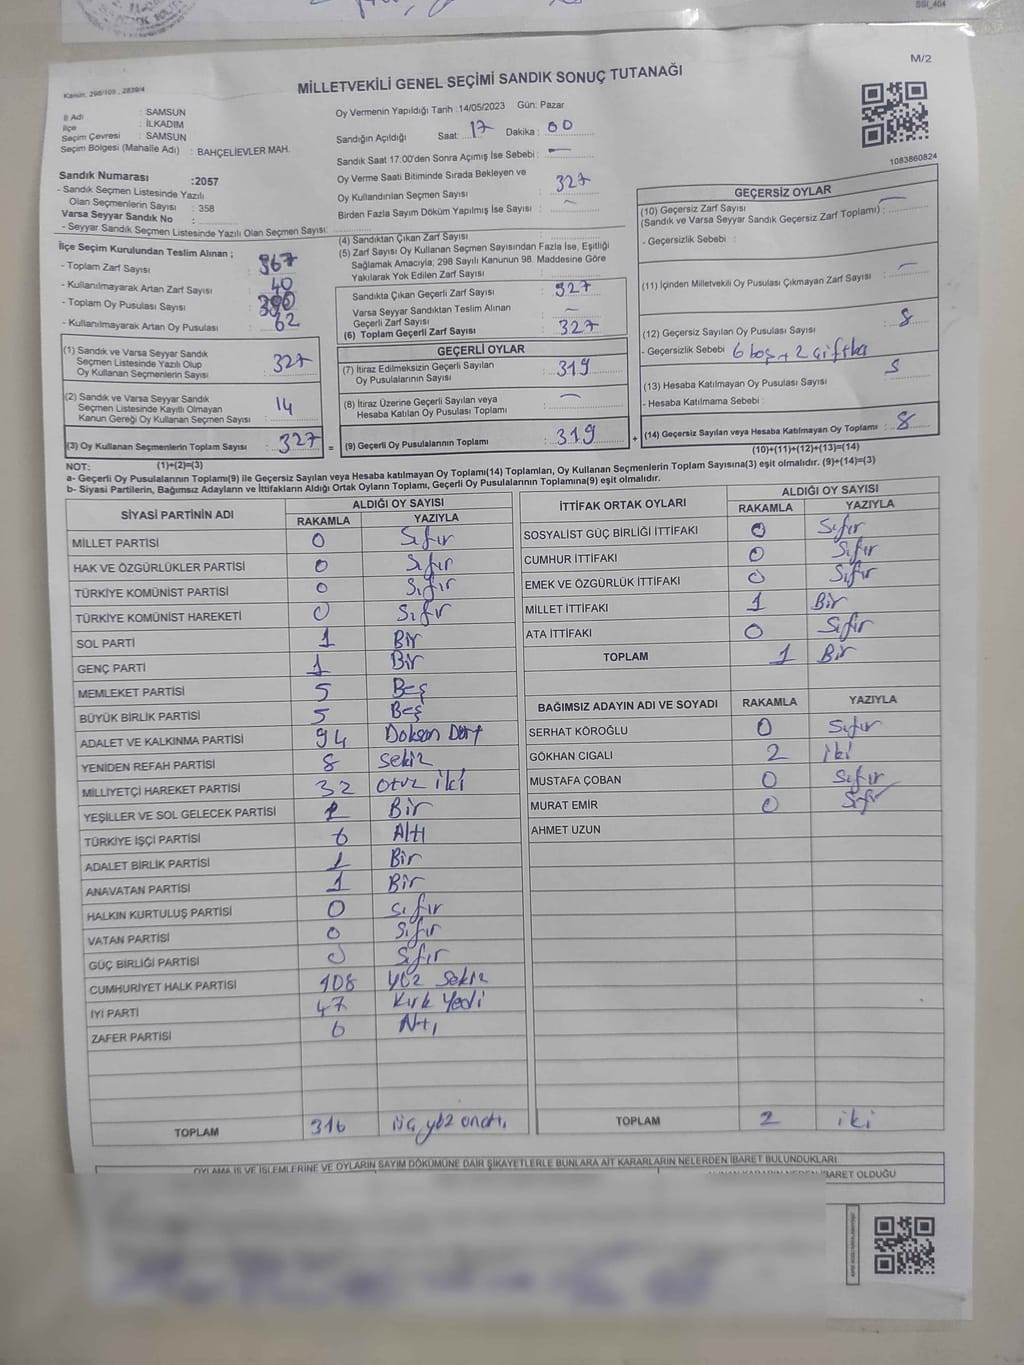 SSI_404
M/2
Kanun, 298/105, 2839/4
MİLLETVEKİLİ GENEL SEÇİMİ SANDIK SONUÇ TUTANAĞI
İl Adı : SAMSUN
İlçe : İLKADIM
Seçim Çevresi : SAMSUN
Seçim Bölgesi (Mahalle Adı) : BAHÇELİEVLER MAH.
Sandık Numarası :2057
- Sandık Seçmen Listesinde Yazılı
Olan Seçmenlerin Sayısı : 358
Varsa Seyyar Sandık No :
- Seyyar Sandık Seçmen Listesinde Yazılı Olan Seçmen Sayısı:
Oy Vermenin Yapıldığı Tarih :14/05/2023 Gün: Pazar
Sandığın Açıldığı Saat: 17 Dakika : 00
Sandık Saat 17:00'den Sonra Açımış İse Sebebi : —
Oy Verme Saati Bitiminde Sırada Bekleyen ve
Oy Kullandırılan Seçmen Sayısı : 327
Birden Fazla Sayım Döküm Yapılmış İse Sayısı : —
1083860824
İlçe Seçim Kurulundan Teslim Alınan ;
- Toplam Zarf Sayısı : 367
- Kullanılmayarak Artan Zarf Sayısı : 40
- Toplam Oy Pusulası Sayısı :
- Kullanılmayarak Artan Oy Pusulası : 62
(1) Sandık ve Varsa Seyyar Sandık
Seçmen Listesinde Yazılı Olup
Oy Kullanan Seçmenlerin Sayısı : 327
(2) Sandık ve Varsa Seyyar Sandık
Seçmen Listesinde Kayıtlı Olmayan
Kanun Gereği Oy Kullanan Seçmen Sayısı : 14
(3) Oy Kullanan Seçmenlerin Toplam Sayısı : 327 =
(1)+(2)=(3)
(4) Sandıktan Çıkan Zarf Sayısı :
(5) Zarf Sayısı Oy Kullanan Seçmen Sayısından Fazla İse, Eşitliği
Sağlamak Amacıyla; 298 Sayılı Kanunun 98. Maddesine Göre
Yakılarak Yok Edilen Zarf Sayısı :
Sandıkta Çıkan Geçerli Zarf Sayısı : 327
Varsa Seyyar Sandıktan Teslim Alınan
Geçerli Zarf Sayısı : —
(6) Toplam Geçerli Zarf Sayısı : 327
GEÇERLİ OYLAR
(7) İtiraz Edilmeksizin Geçerli Sayılan
Oy Pusulalarının Sayısı : 319
(8) İtiraz Üzerine Geçerli Sayılan veya
Hesaba Katılan Oy Pusulası Toplamı : —
(9) Geçerli Oy Pusulalarının Toplamı : 319 +
GEÇERSİZ OYLAR
(10) Geçersiz Zarf Sayısı
(Sandık ve Varsa Seyyar Sandık Geçersiz Zarf Toplamı) : —
- Geçersizlik Sebebi :
(11) İçinden Milletvekili Oy Pusulası Çıkmayan Zarf Sayısı : —
(12) Geçersiz Sayılan Oy Pusulası Sayısı : 8
- Geçersizlik Sebebi : 6 boş + 2 çiftka
(13) Hesaba Katılmayan Oy Pusulası Sayısı :
- Hesaba Katılmama Sebebi :
(14) Geçersiz Sayılan veya Hesaba Katılmayan Oy Toplamı : 8
(10)+(11)+(12)+(13)=(14)
NOT:
a- Geçerli Oy Pusulalarının Toplamı(9) ile Geçersiz Sayılan veya Hesaba katılmayan Oy Toplamı(14) Toplamları, Oy Kullanan Seçmenlerin Toplam Sayısına(3) eşit olmalıdır. (9)+(14)=(3)
b- Siyasi Partilerin, Bağımsız Adayların ve İttifakların Aldığı Ortak Oyların Toplamı, Geçerli Oy Pusulalarının Toplamına(9) eşit olmalıdır.
SİYASİ PARTİNİN ADI ALDIĞI OY SAYISI
RAKAMLA YAZIYLA
MİLLET PARTİSİ 0 Sıfır
HAK VE ÖZGÜRLÜKLER PARTİSİ 0 Sıfır
TÜRKİYE KOMÜNİST PARTİSİ 0 Sıfır
TÜRKİYE KOMÜNİST HAREKETİ 0 Sıfır
SOL PARTİ 1 Bir
GENÇ PARTİ 1 Bir
MEMLEKET PARTİSİ 5 Beş
BÜYÜK BİRLİK PARTİSİ 5 Beş
ADALET VE KALKINMA PARTİSİ 94 Doksan Dört
YENİDEN REFAH PARTİSİ 8 sekiz
MİLLİYETÇİ HAREKET PARTİSİ 32 otuz iki
YEŞİLLER VE SOL GELECEK PARTİSİ 1 Bir
TÜRKİYE İŞÇİ PARTİSİ 6 Altı
ADALET BİRLİK PARTİSİ 1 Bir
ANAVATAN PARTİSİ 1 Bir
HALKIN KURTULUŞ PARTİSİ 0 sıfır
VATAN PARTİSİ 0 Sıfır
GÜÇ BİRLİĞİ PARTİSİ 0 Sıfır
CUMHURİYET HALK PARTİSİ 108 yüz sekiz
İYİ PARTİ 47 Kırk Yedi
ZAFER PARTİSİ 6 Altı
TOPLAM 316 üç yüz onaltı
İTTİFAK ORTAK OYLARI ALDIĞI OY SAYISI
RAKAMLA YAZIYLA
SOSYALİST GÜÇ BİRLİĞİ İTTİFAKI 0 Sıfır
CUMHUR İTTİFAKI 0 Sıfır
EMEK VE ÖZGÜRLÜK İTTİFAKI 0 Sıfır
MİLLET İTTİFAKI 1 Bir
ATA İTTİFAKI 0 Sıfır
TOPLAM 1 Bir
BAĞIMSIZ ADAYIN ADI VE SOYADI RAKAMLA YAZIYLA
SERHAT KÖROĞLU 0 Sıfır
GÖKHAN CIGALI 2 iki
MUSTAFA ÇOBAN 0 Sıfır
MURAT EMİR 0 Sıfır
AHMET UZUN
TOPLAM 2 iki
OYLAMA İŞ VE İŞLEMLERİNE VE OYLARIN SAYIM DÖKÜMÜNE DAİR ŞİKAYETLERLE BUNLARA AİT KARARLARIN NELERDEN İBARET BULUNDUKLARI
İBARET OLDUĞU